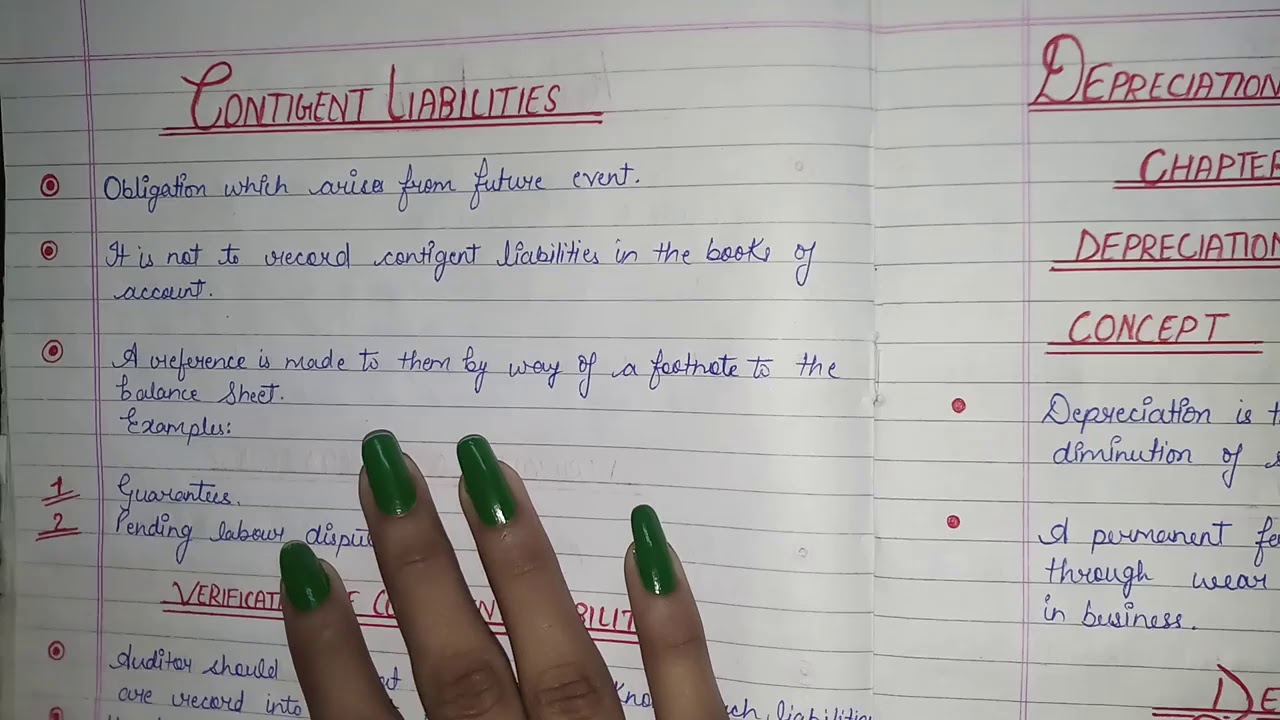 CONTIGENT LIABILITIES
Obligation which arises from future event.
It is not to record contigent liabilities in the books of
account.
A reference is made to them by way of a footnote to the
balance sheet.
Examples:
1 Guarantees.
2 Pending labour
VERIFICAT
Auditor should
are record into liabilities
DEPRECIATION
CHAPTER
DEPRECIATION
CONCEPT
Depreciation is
diminution of
A permanent
through wear
in business.